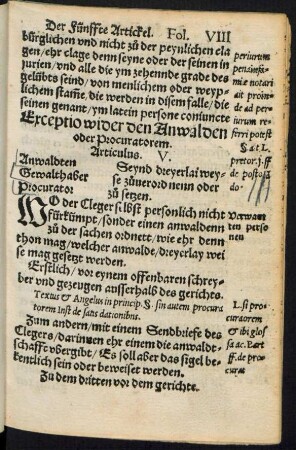 Der Fünffte Artickel. Fol. VIII
bürglichen vnd nicht zů der peynlichen cla
gen/ ehr clage denn seyne oder der seinen in
iurien/ vnd alle die ym zehennde grade des
gelübts seind/ von menlichem oder weyp-
plichem stam̃e, die werden in disem falle/ die
seinen genant/ ym latein persone coniuncte
Exceptio wider den Anwalden
oder Procuratorem.
Articulus. V.
Anwaldten
Gewalthaber
Procurator
Seynd dreyerlai wey-
se zůuerordnenn oder
zů setzen.
WO der Cleger selbst persönlich nicht
fürkümpt/ sonder einen anwaldenn
zů der sachen ordnett/ wie ehr denn
thon mag/ welcher anwalde/ dreyerlay wei
se mag gesetzt werden.
Erstlich/ vor eynem offenbaren schrey-
ber vnd gezeugen ausserhalb des gerichts.
Textus & Angelus in princip. §. sin autem procura
torem Inst de satisdationibus.
Zum andern/ mit einem Sendbriefe des
Clegers/ darinnen ehr einem die anwaldt-
schafft vbergibt/ Es soll aber das sigel be-
kentlich sein oder beweiset werden.
Zu dem dritten vor dem gerichte.
periurum
de ad per
iurum re-
ferri potest
pretor. j. ff
de postulā
do.
ten perso
nen
L. si pro-
curaorem
& ibi glos
sa ac Bart
ff. de pro-
cura: